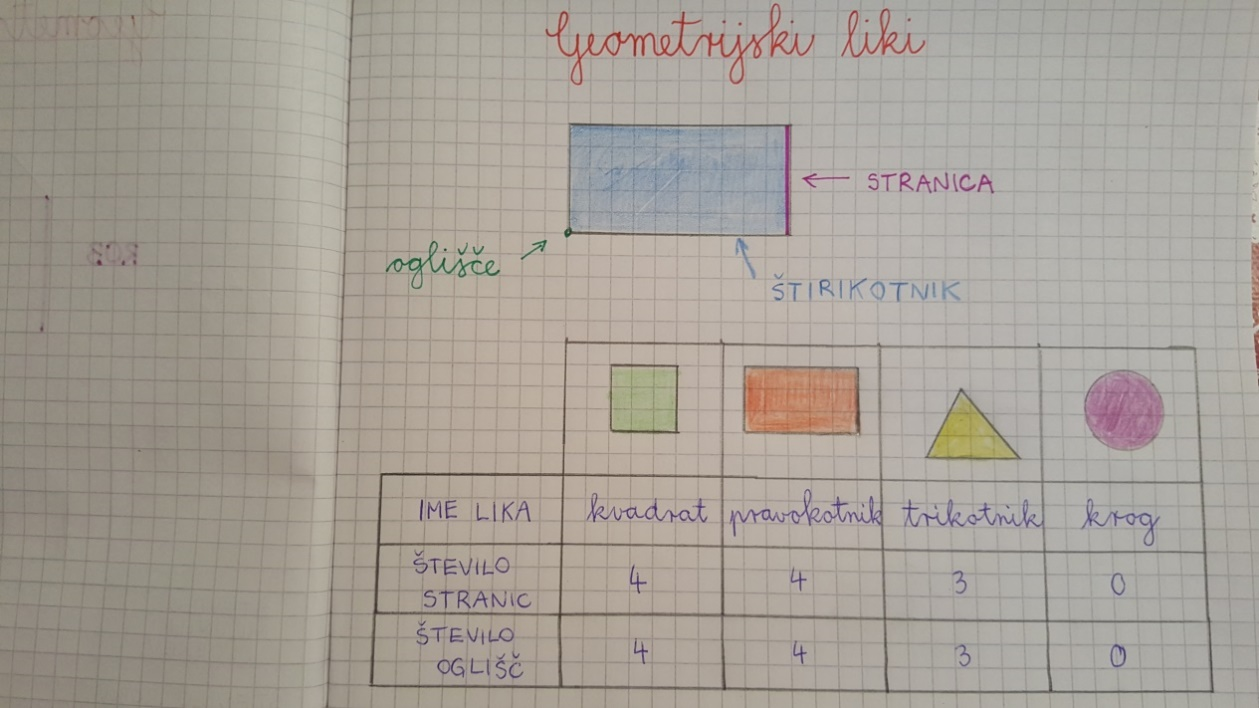 Geometrijski liki
STRANICA
oglišče
ŠTIRIKOTNIK
IME LIKA kvadrat pravokotnik trikotnik krog
ŠTEVILO
STRANIC 4 4 3 0
ŠTEVILO
OGLIŠČ 4 4 3 0